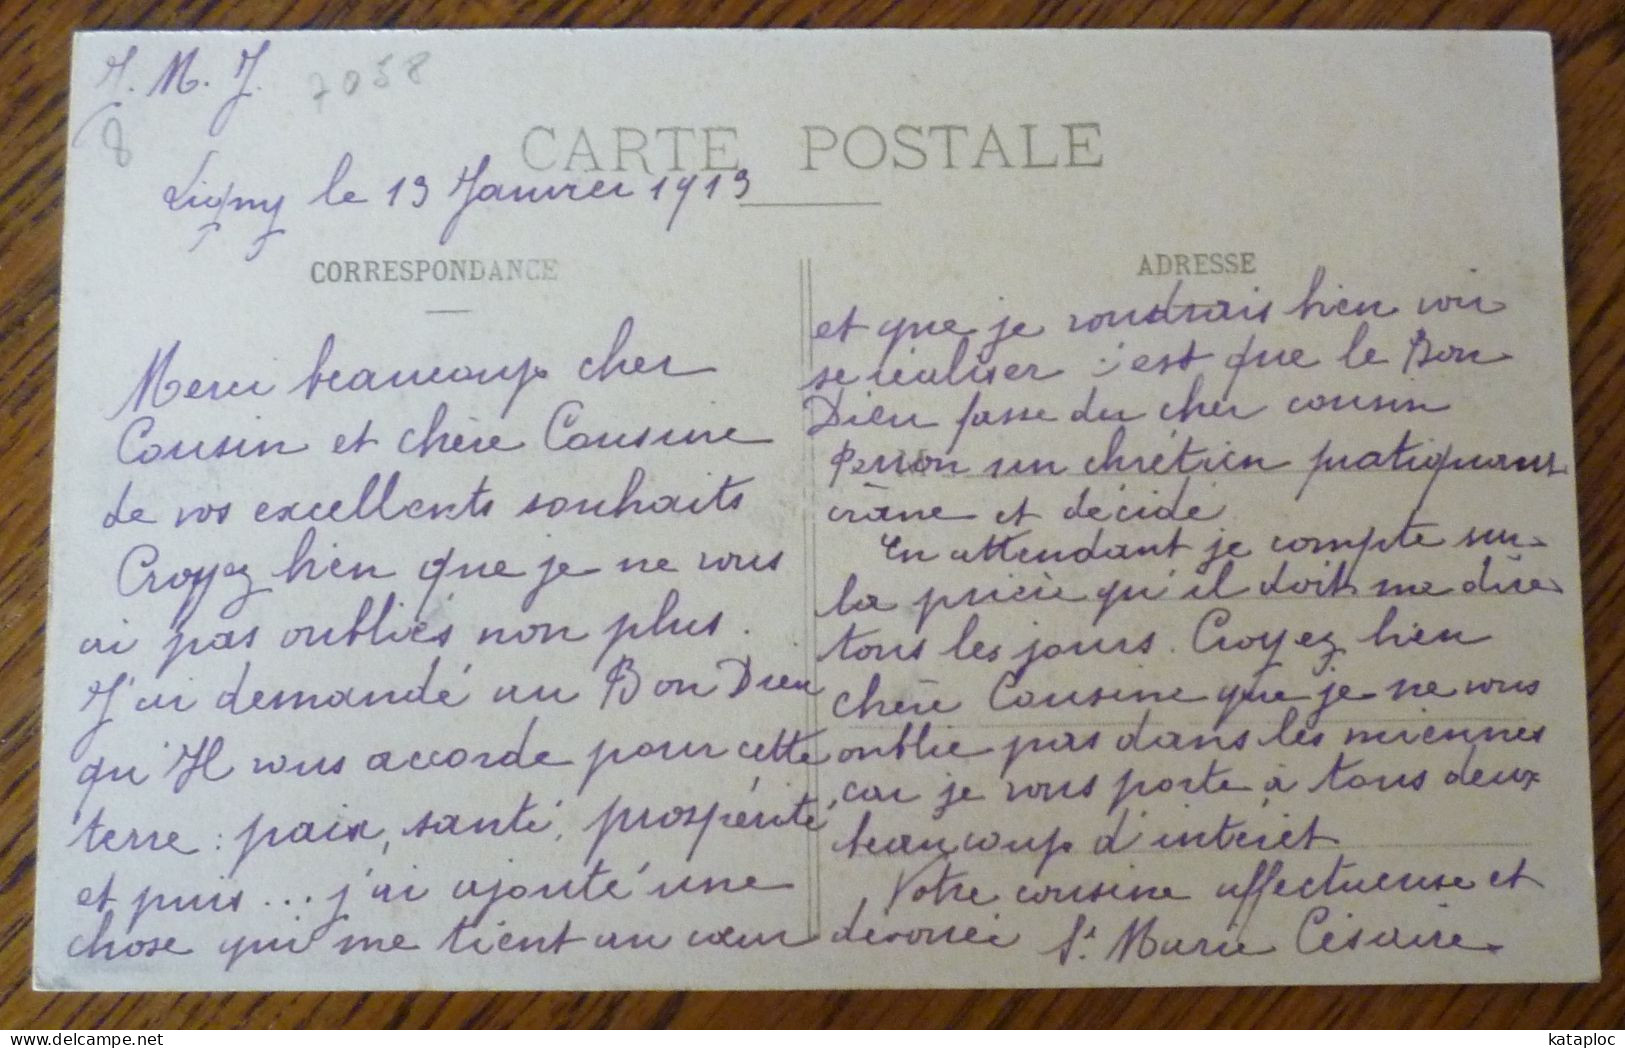 J. M. J.
7058
8
CARTE POSTALE
Ligny le 13 Janvier 1913
CORRESPONDANCE
Merci beaucoup cher
Cousin et chère Cousine
de vos excellents souhaits
Croyez bien que je ne vous
ai pas oubliés non plus.
J'ai demandé au Bon Dieu
qu'Il vous accorde pour cette
terre : paix, santé, prospérité
et puis... j'ai ajouté une
chose qui me tient au cœur
ADRESSE
et que je voudrais bien voir
se réaliser c'est que le Bon
Dieu fasse du cher cousin
Perron un chrétien pratiquant
crâne et décidé
En attendant je compte sur
la prière qu'il doit me dire
tous les jours. Croyez bien
chère Cousine que je ne vous
oublie pas dans les miennes
car je vous porte à tous deux
beaucoup d'intérêt
Votre cousine affectueuse et
dévouée Sr Marie Césaire.
kataploc